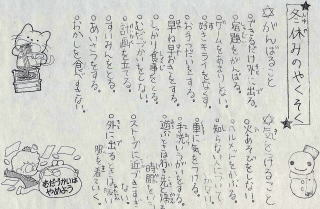 冬休みのやくそく
☆がんばること
・できるだけ外に出る。
・宿題をがんばる。
・ゲームをあまりしない。
・好ききらいをなくす。
・お手つだいをする。
・早ね早おきをする。
・しっかり食事をとる。
・むだづかいをしない。
・計画を立てる。
・すいみんをとる。
・あいさつをする。
・おかしを食べすぎない。
☆気をつけること
・火あそびをしない。
・ヘルメットをかぶる。
・知らない人について
いかない。
・車に気をつける。
・手洗い、うがいをする。
・遊ぶときは
時間を
・ストーブに近づきすぎ
ない。
・外に出るときは
服を着ていく。
むだづかいは
やめよう